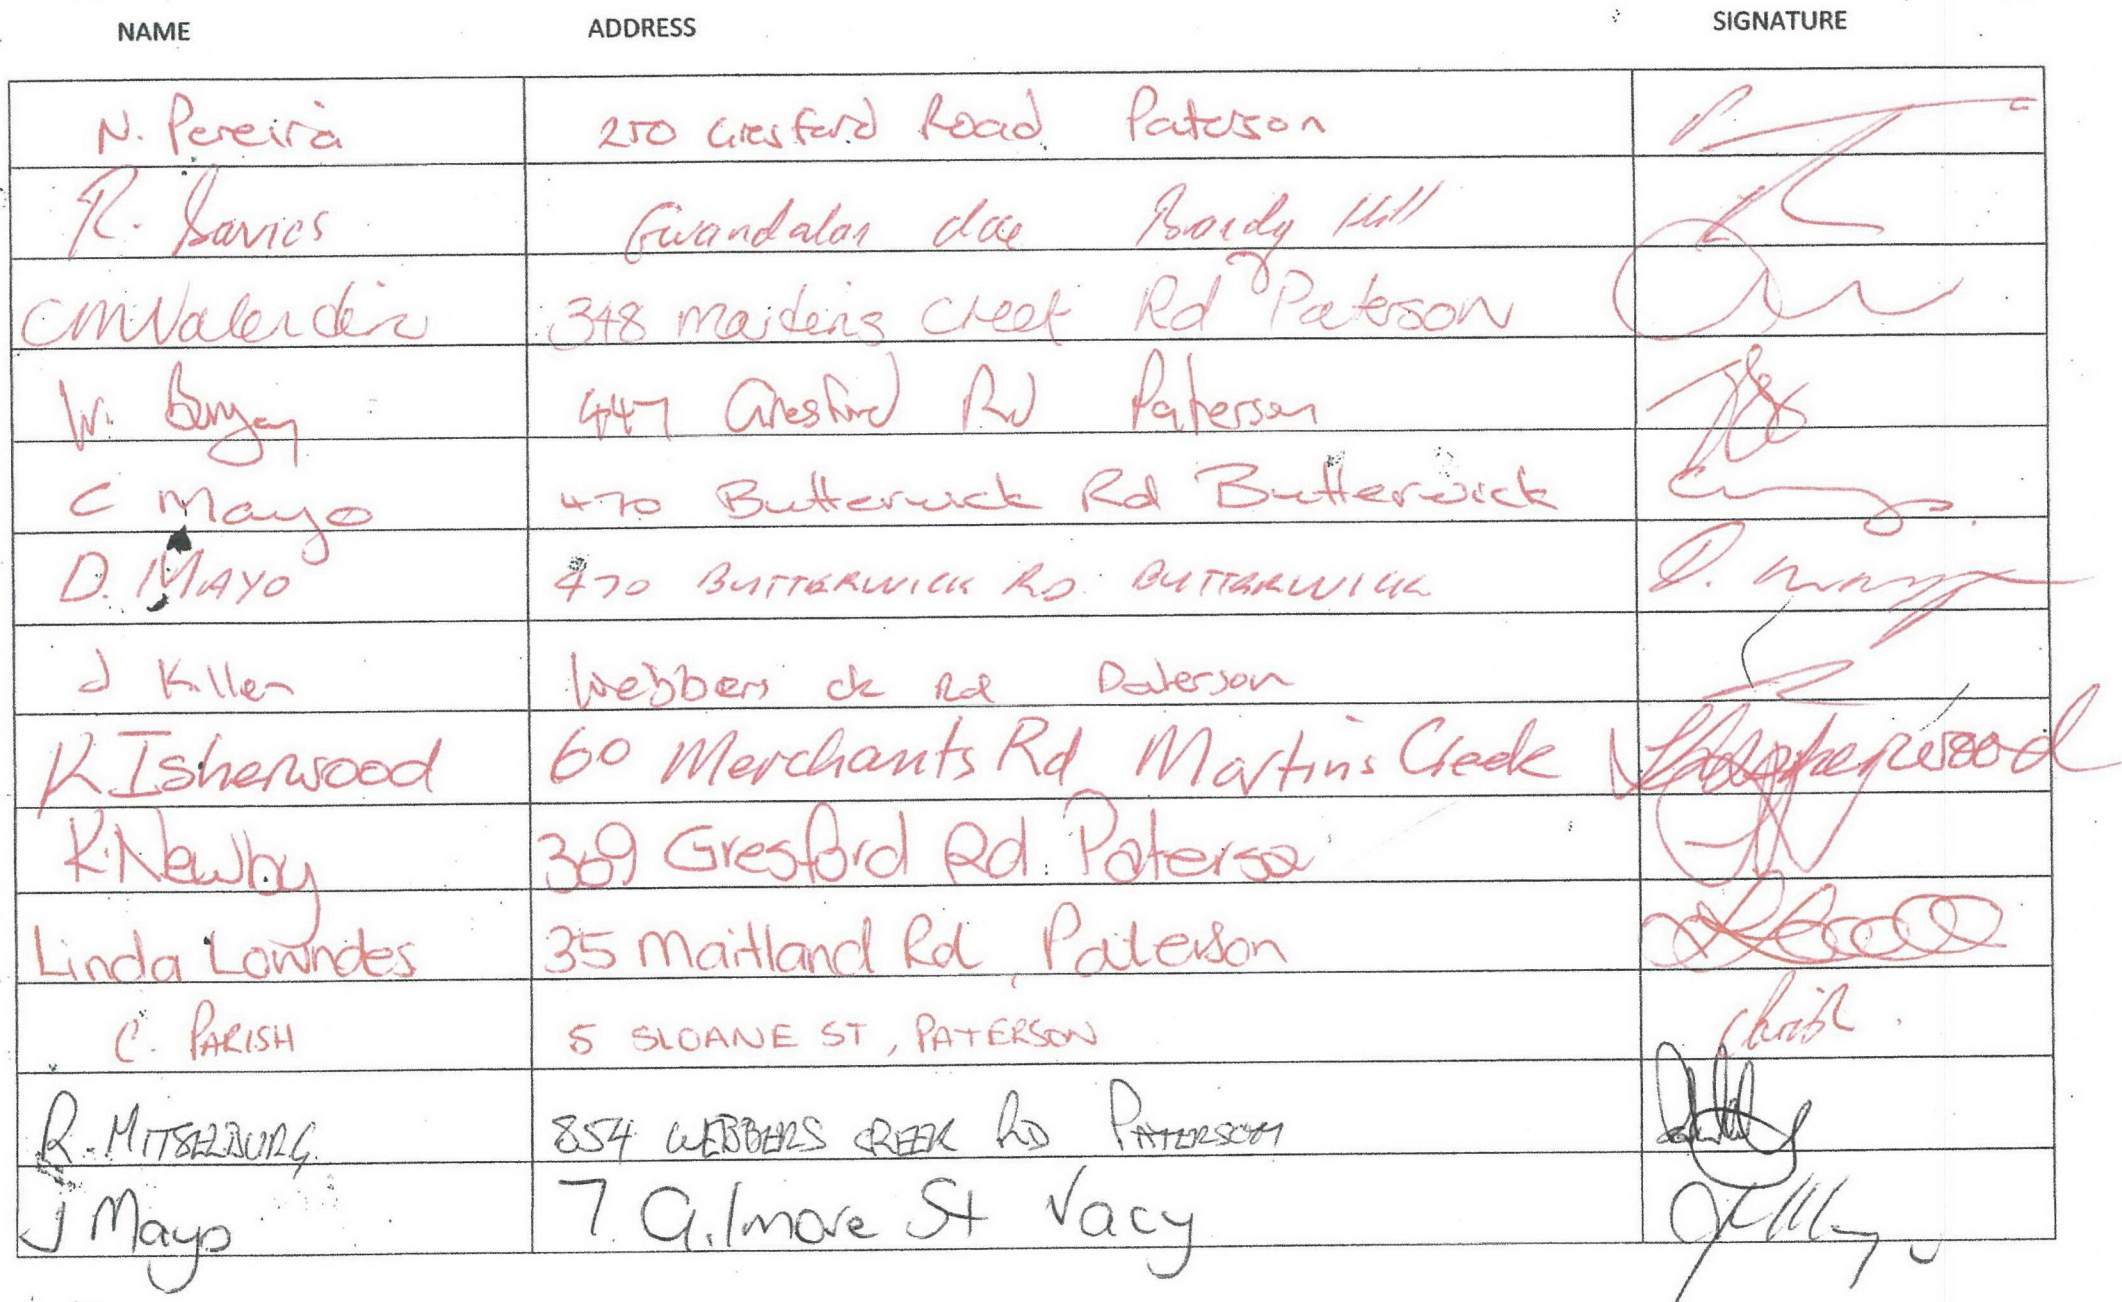 NAME ADDRESS SIGNATURE
N. Pereira 250 Gresford Road Paterson
R. Davies Gwandalan Brandy Hill
CM Valentin 348 Martins Creek Rd Paterson
W. 447 Gresford Rd Paterson
C Mayo 470 Butterwick Rd Butterwick
D. MAYO 470 BUTTERWICK RD. BUTTERWICK D. Mayo
J Killen Webbers ck Rd Paterson
K Isherwood 60 Merchants Rd Martins Creek Isherwood
K. Newby 369 Gresford Rd. Paterso
Linda Lowndes 35 Maitland Rd, Paterson
C. PARISH 5 SLOANE ST, PATERSON
R. MITSZLBURG 854 WEBBERS CREEK RD PATERSON
J Mayo 7 Gilmore St Vacy